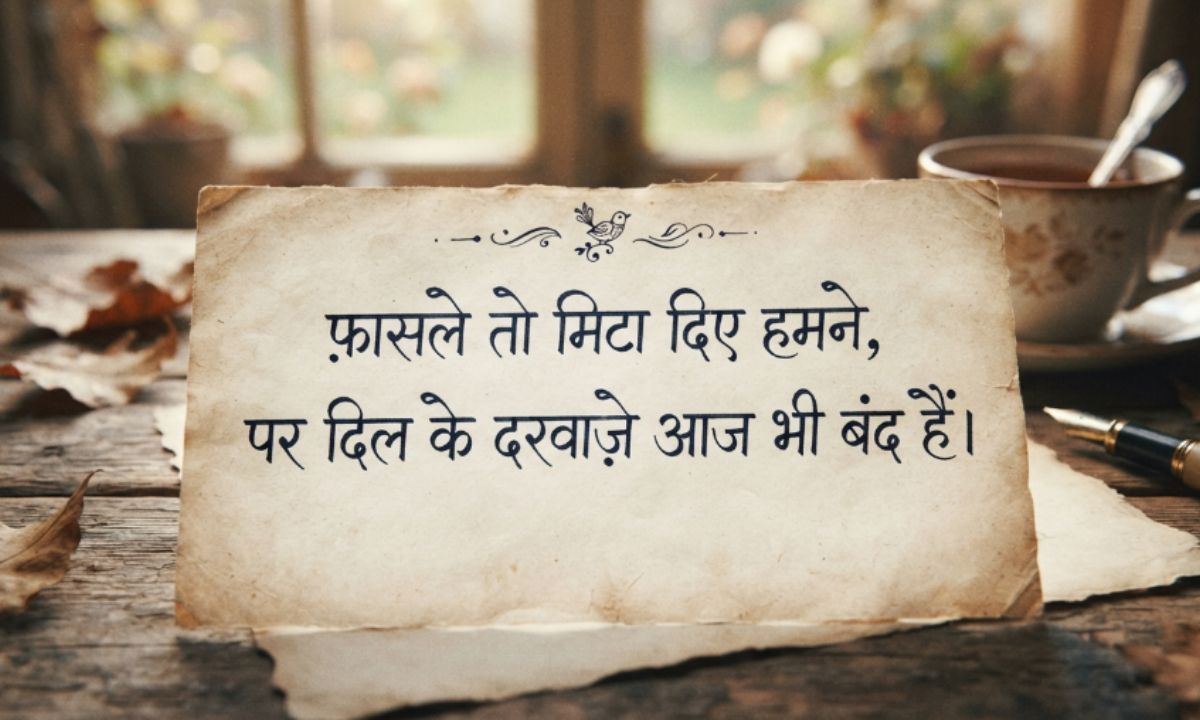 फ़ासले तो मिटा दिए हमने,
पर दिल के दरवाज़े आज भी बंद हैं।